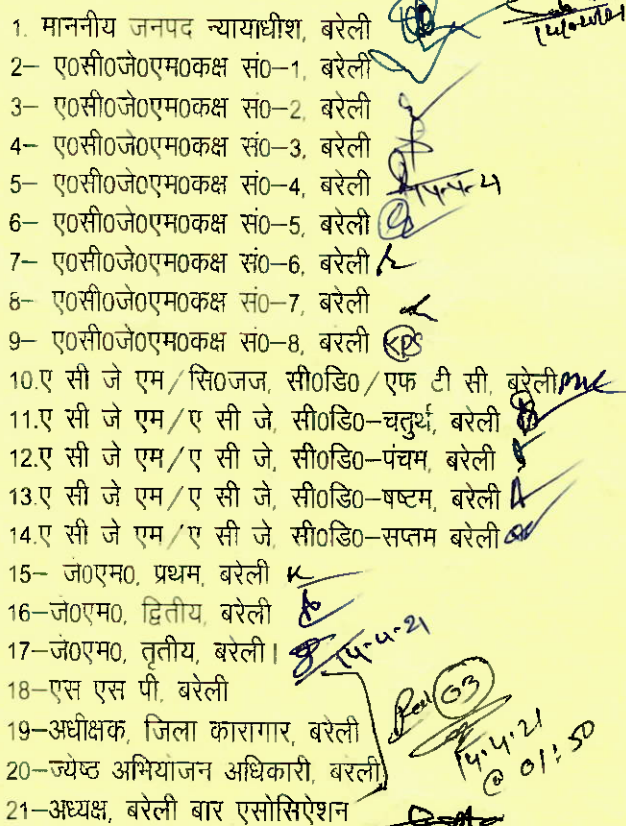 1. माननीय जनपद न्यायाधीश, बरेली
2– ए0सी0जे0एम0कक्ष सं0–1, बरेली
3– ए0सी0जे0एम0कक्ष सं0–2, बरेली
4– ए0सी0जे0एम0कक्ष सं0–3, बरेली
5– ए0सी0जे0एम0कक्ष सं0–4, बरेली 14-4-21
6– ए0सी0जे0एम0कक्ष सं0–5, बरेली
7– ए0सी0जे0एम0कक्ष सं0–6, बरेली
8– ए0सी0जे0एम0कक्ष सं0–7, बरेली
9– ए0सी0जे0एम0कक्ष सं0–8, बरली KPS
10.ए सी जे एम/सि0जज, सी0डि0/एफ टी सी, बरेली
11.ए सी जे एम/ए सी जे, सी0डि0–चतुर्थ, बरेली
12.ए सी जे एम/ए सी जे, सी0डि0–पंचम, बरेली
13.ए सी जे एम/ए सी जे, सी0डि0–षष्टम, बरेली
14.ए सी जे एम/ए सी जे, सी0डि0–सप्तम बरेली
15– ज0एम0, प्रथम, बरेली
16–ज0एम0, द्वितीय, बरेली
17–ज0एम0, तृतीय, बरेली। 14-4-21
18–एस एस पी, बरेली
19–अधीक्षक, जिला कारागार, बरेली
20–ज्येष्ठ अभियाजन अधिकारी, बरली 14-4-21 @ 01:50
21–अध्यक्ष, बरेली बार एसोसिऐशन